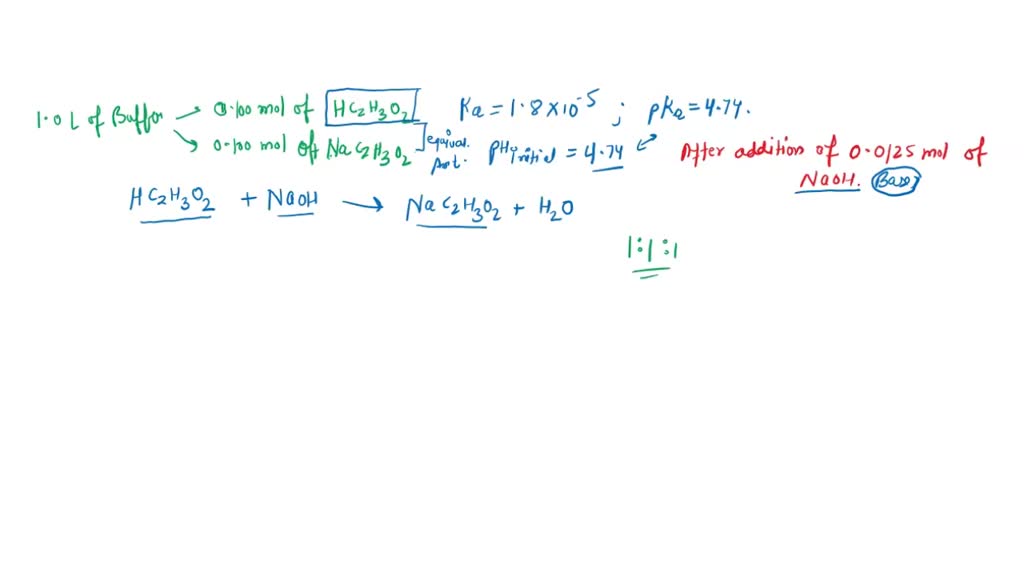 1.0 L of Buffer → 0.100 mol of HC₂H₃O₂ Ka = 1.8×10⁻⁵ ; pKa = 4.74.
↘ 0.100 mol of NaC₂H₃O₂ ] equival. Amt. pH initial = 4.74
After addition of 0.0125 mol of
NaOH. Base
HC₂H₃O₂ + NaOH → NaC₂H₃O₂ + H₂O
1:1:1